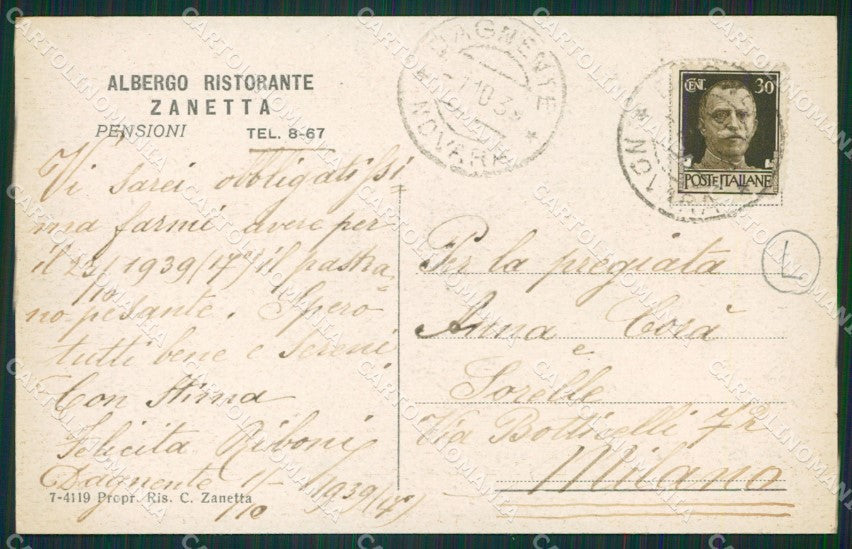 ALBERGO RISTORANTE
ZANETTA
PENSIONI TEL. 8-67
Vi sarei obbligatissi=
ma farmi avere per
il 23/10 1939 (17º) il pastra=
no pesante. Spero
tutti bene e sereni
Con stima
Felicita Riboni
Dagnente 1/10 1939 (17º)
7-4119 Propr. Ris. C. Zanetta
DAGNENTE
1.10.39
* NOVARA *
CENT. 30
POSTE ITALIANE
L
Per la pregiata
Anna Corà
e
Sorelle
Via Botticelli 72
Milano
CARTOLINOMANIA